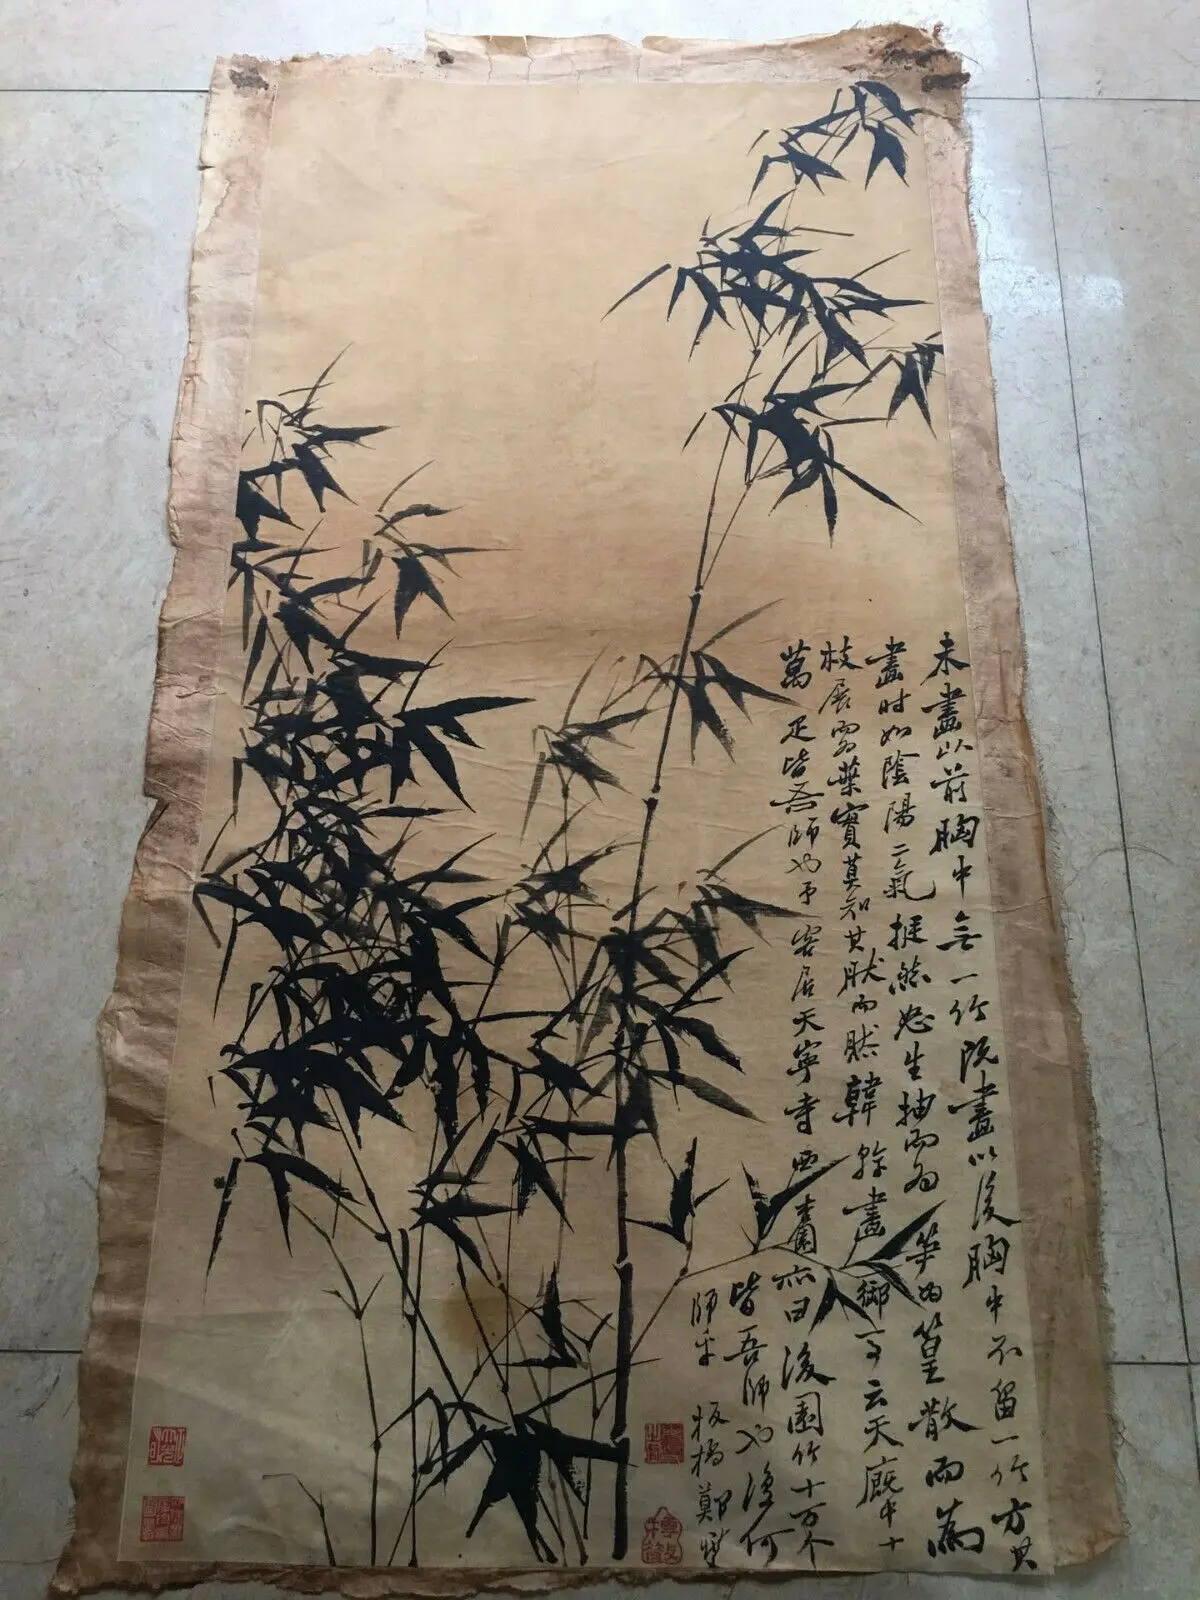 未畫以前胸中無一竹既畫以後胸中不留一竹方其
畫時如陰陽二氣挺然怒生抽而為笋為篁散而為
枝展而為葉實莫知其然而然韓幹畫御馬云天廐中十
萬疋皆吾師也予客居天寧寺西亦曰後園竹十万个
皆吾師也復何
師乎 板橋鄭燮